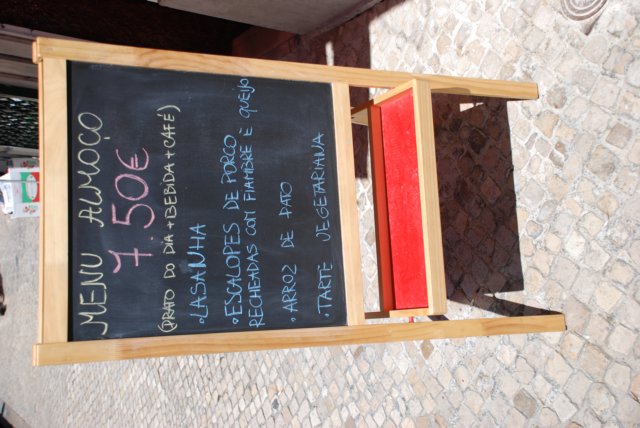 MENU ALMOÇO
7.50€
(PRATO DO DIA + BEBIDA + CAFÉ)
• LASANHA
• ESCALOPES DE PORCO
RECHEADAS COM FIAMBRE E QUEIJO
• ARROZ DE PATO
• TARTE VEGETARIANA